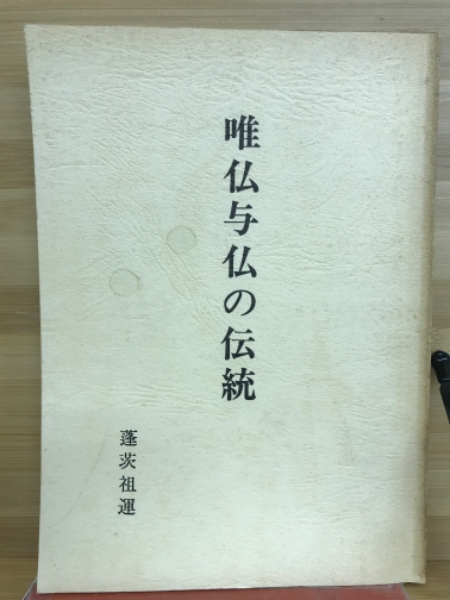 唯仏与仏の伝統
蓬茨祖運